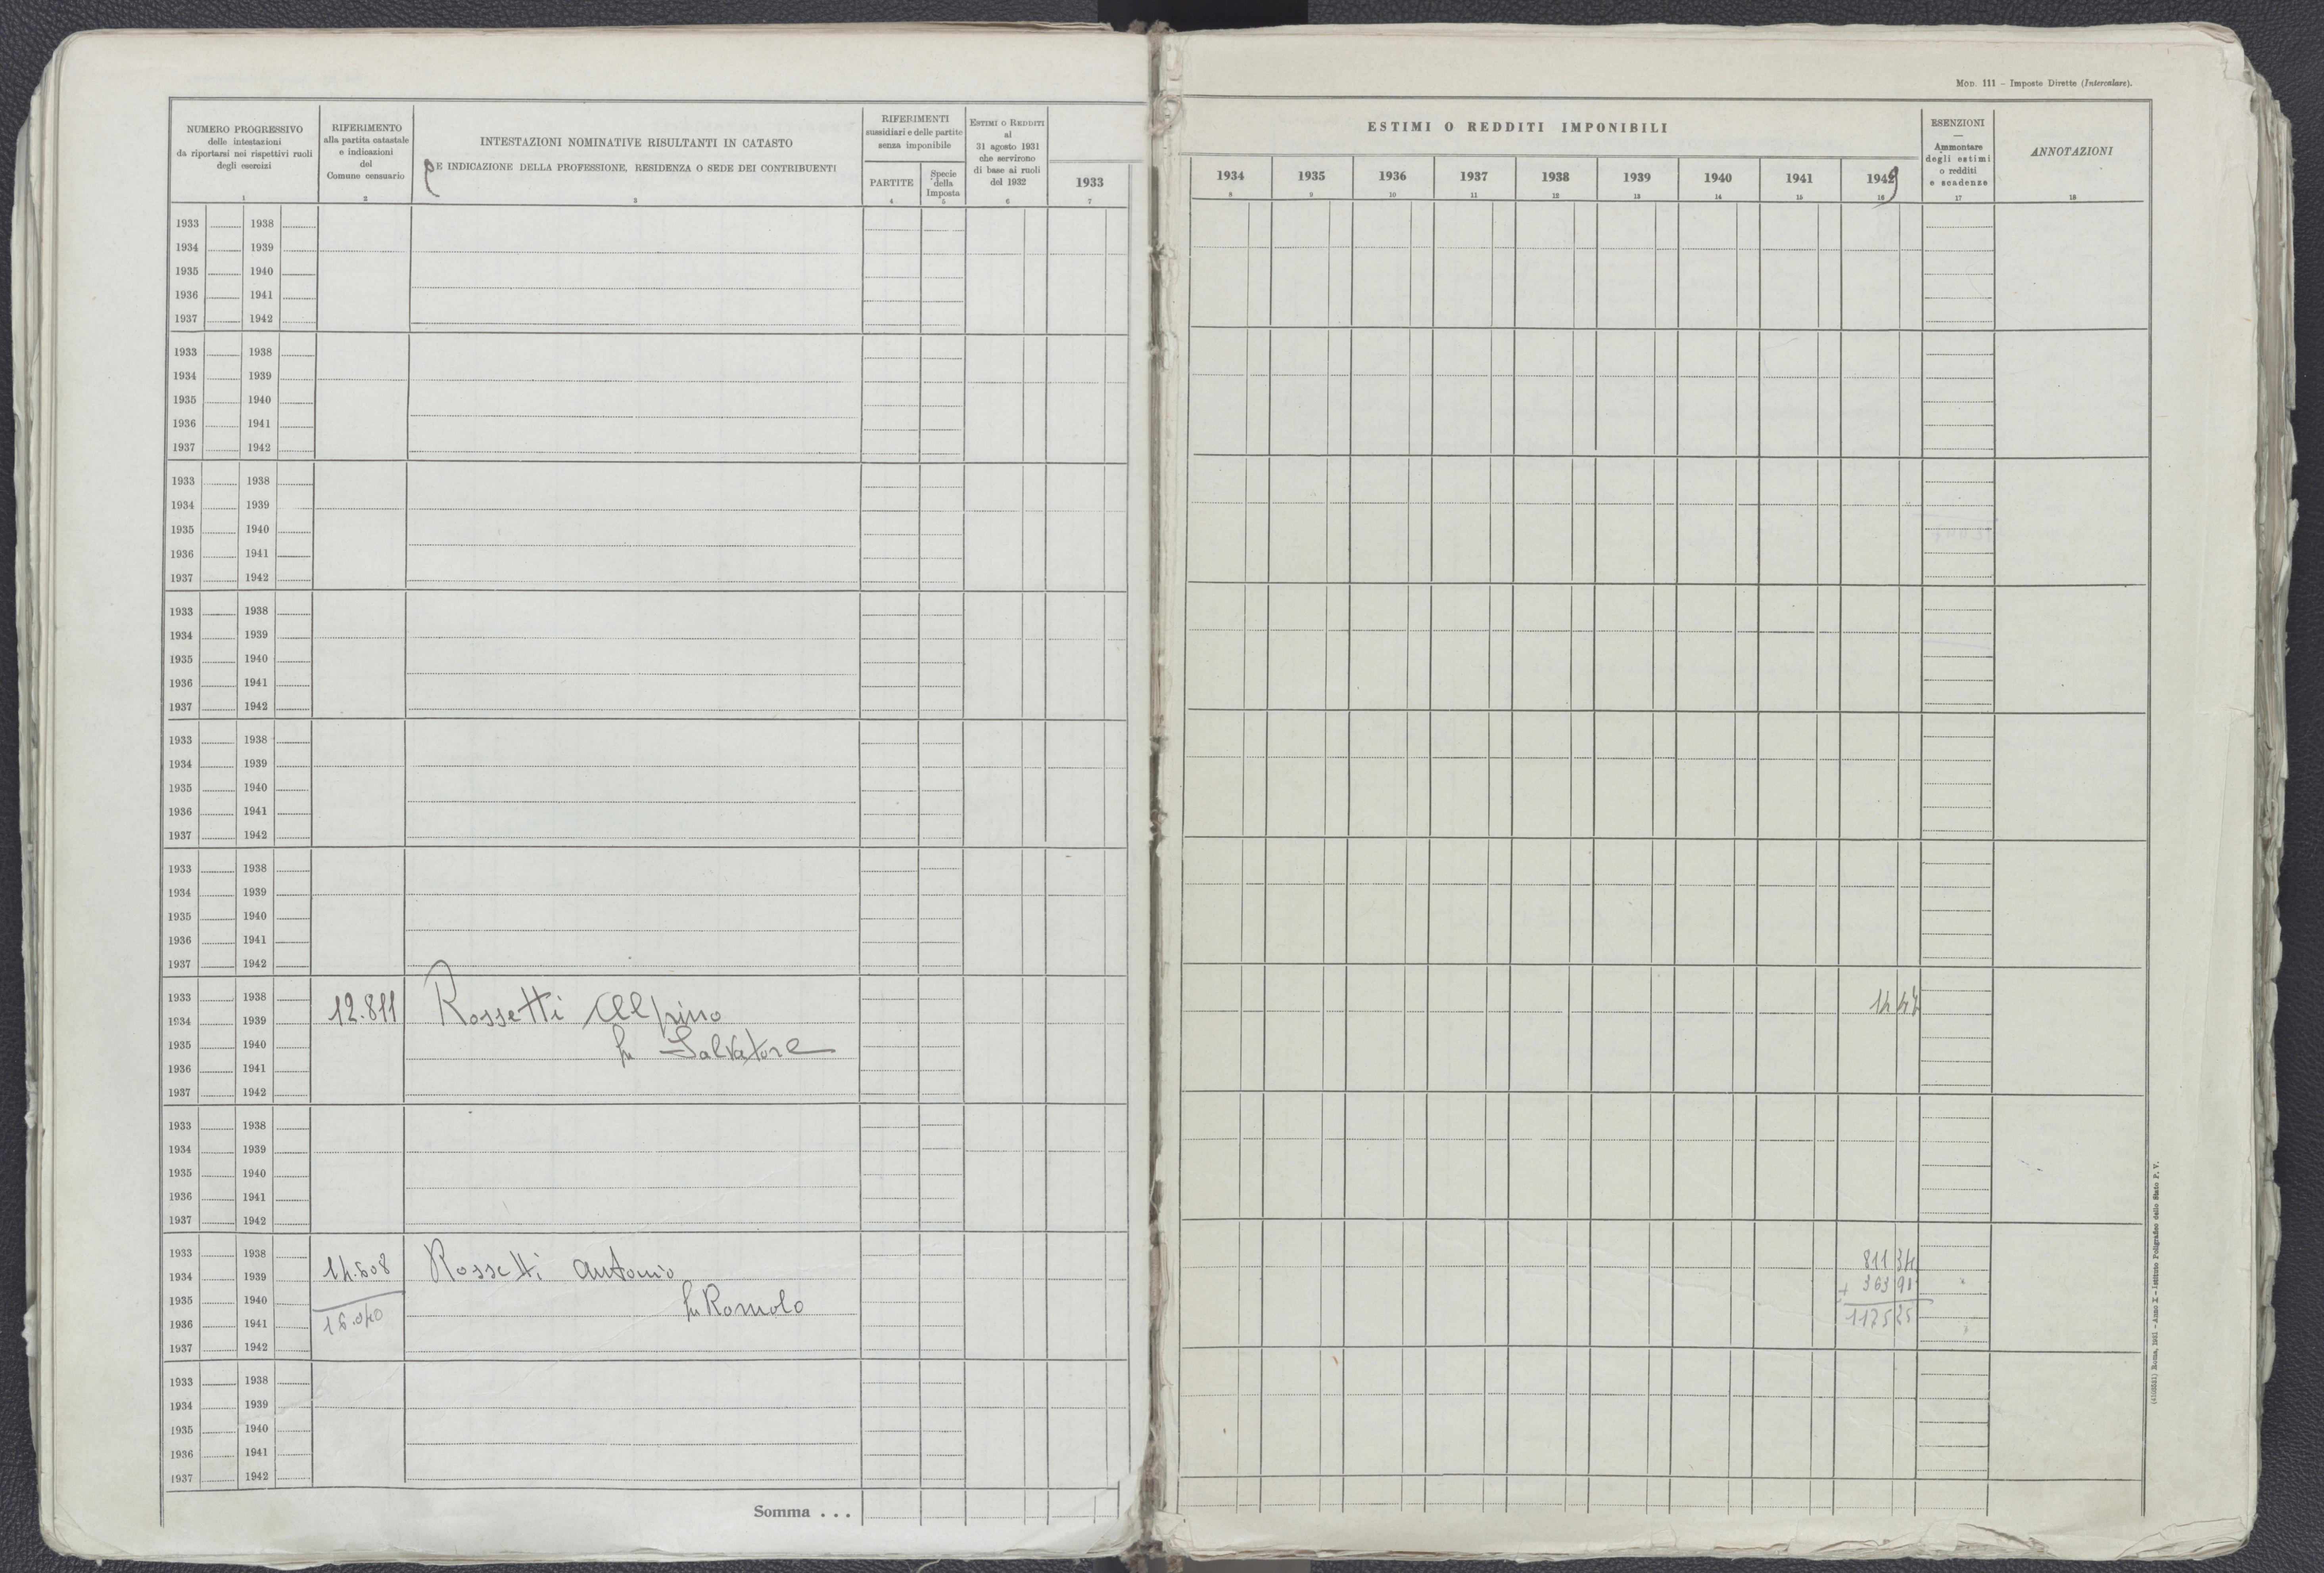 MOD. 111 – Imposte Dirette (Intercalare).
NUMERO PROGRESSIVO
delle intestazioni
da riportarsi nei rispettivi ruoli
degli esercizi
1
RIFERIMENTO
alla partita catastale
e indicazioni
del
Comune censuario
2
INTESTAZIONI NOMINATIVE RISULTANTI IN CATASTO
E INDICAZIONE DELLA PROFESSIONE, RESIDENZA O SEDE DEI CONTRIBUENTI
3
RIFERIMENTI
sussidiari e delle partite
senza imponibile
PARTITE
4
Specie
della
Imposta
5
ESTIMI O REDDITI
al
31 agosto 1931
che servirono
di base ai ruoli
del 1932
6
1933
7
ESTIMI O REDDITI IMPONIBILI
1934 1935 1936 1937 1938 1939 1940 1941 1949
8 9 10 11 12 13 14 15 16
ESENZIONI
—
Ammontare
degli estimi
o redditi
e scadenze
17
ANNOTAZIONI
18
1933 1938
1934 1939
1935 1940
1936 1941
1937 1942
1933 1938
1934 1939
1935 1940
1936 1941
1937 1942
1933 1938
1934 1939
1935 1940
1936 1941
1937 1942
1933 1938
1934 1939
1935 1940
1936 1941
1937 1942
1933 1938
1934 1939
1935 1940
1936 1941
1937 1942
1933 1938
1934 1939
1935 1940
1936 1941
1937 1942
1933 1938
12.811 Rossetti Alpino
1934 1939
fu Salvatore
1935 1940
1936 1941
1937 1942
1933 1938
1934 1939
1935 1940
1936 1941
1937 1942
1933 1938
811 34
14.608 Rossetti Antonio
1934 1939
+ 363 91
1935 1940
fu Romolo
1175 25
1936 1941
16.040
1937 1942
1933 1938
1934 1939
1935 1940
1936 1941
1937 1942
Somma . . .
(4103521) Roma, 1931 – Anno X – Istituto Poligrafico dello Stato P. V.